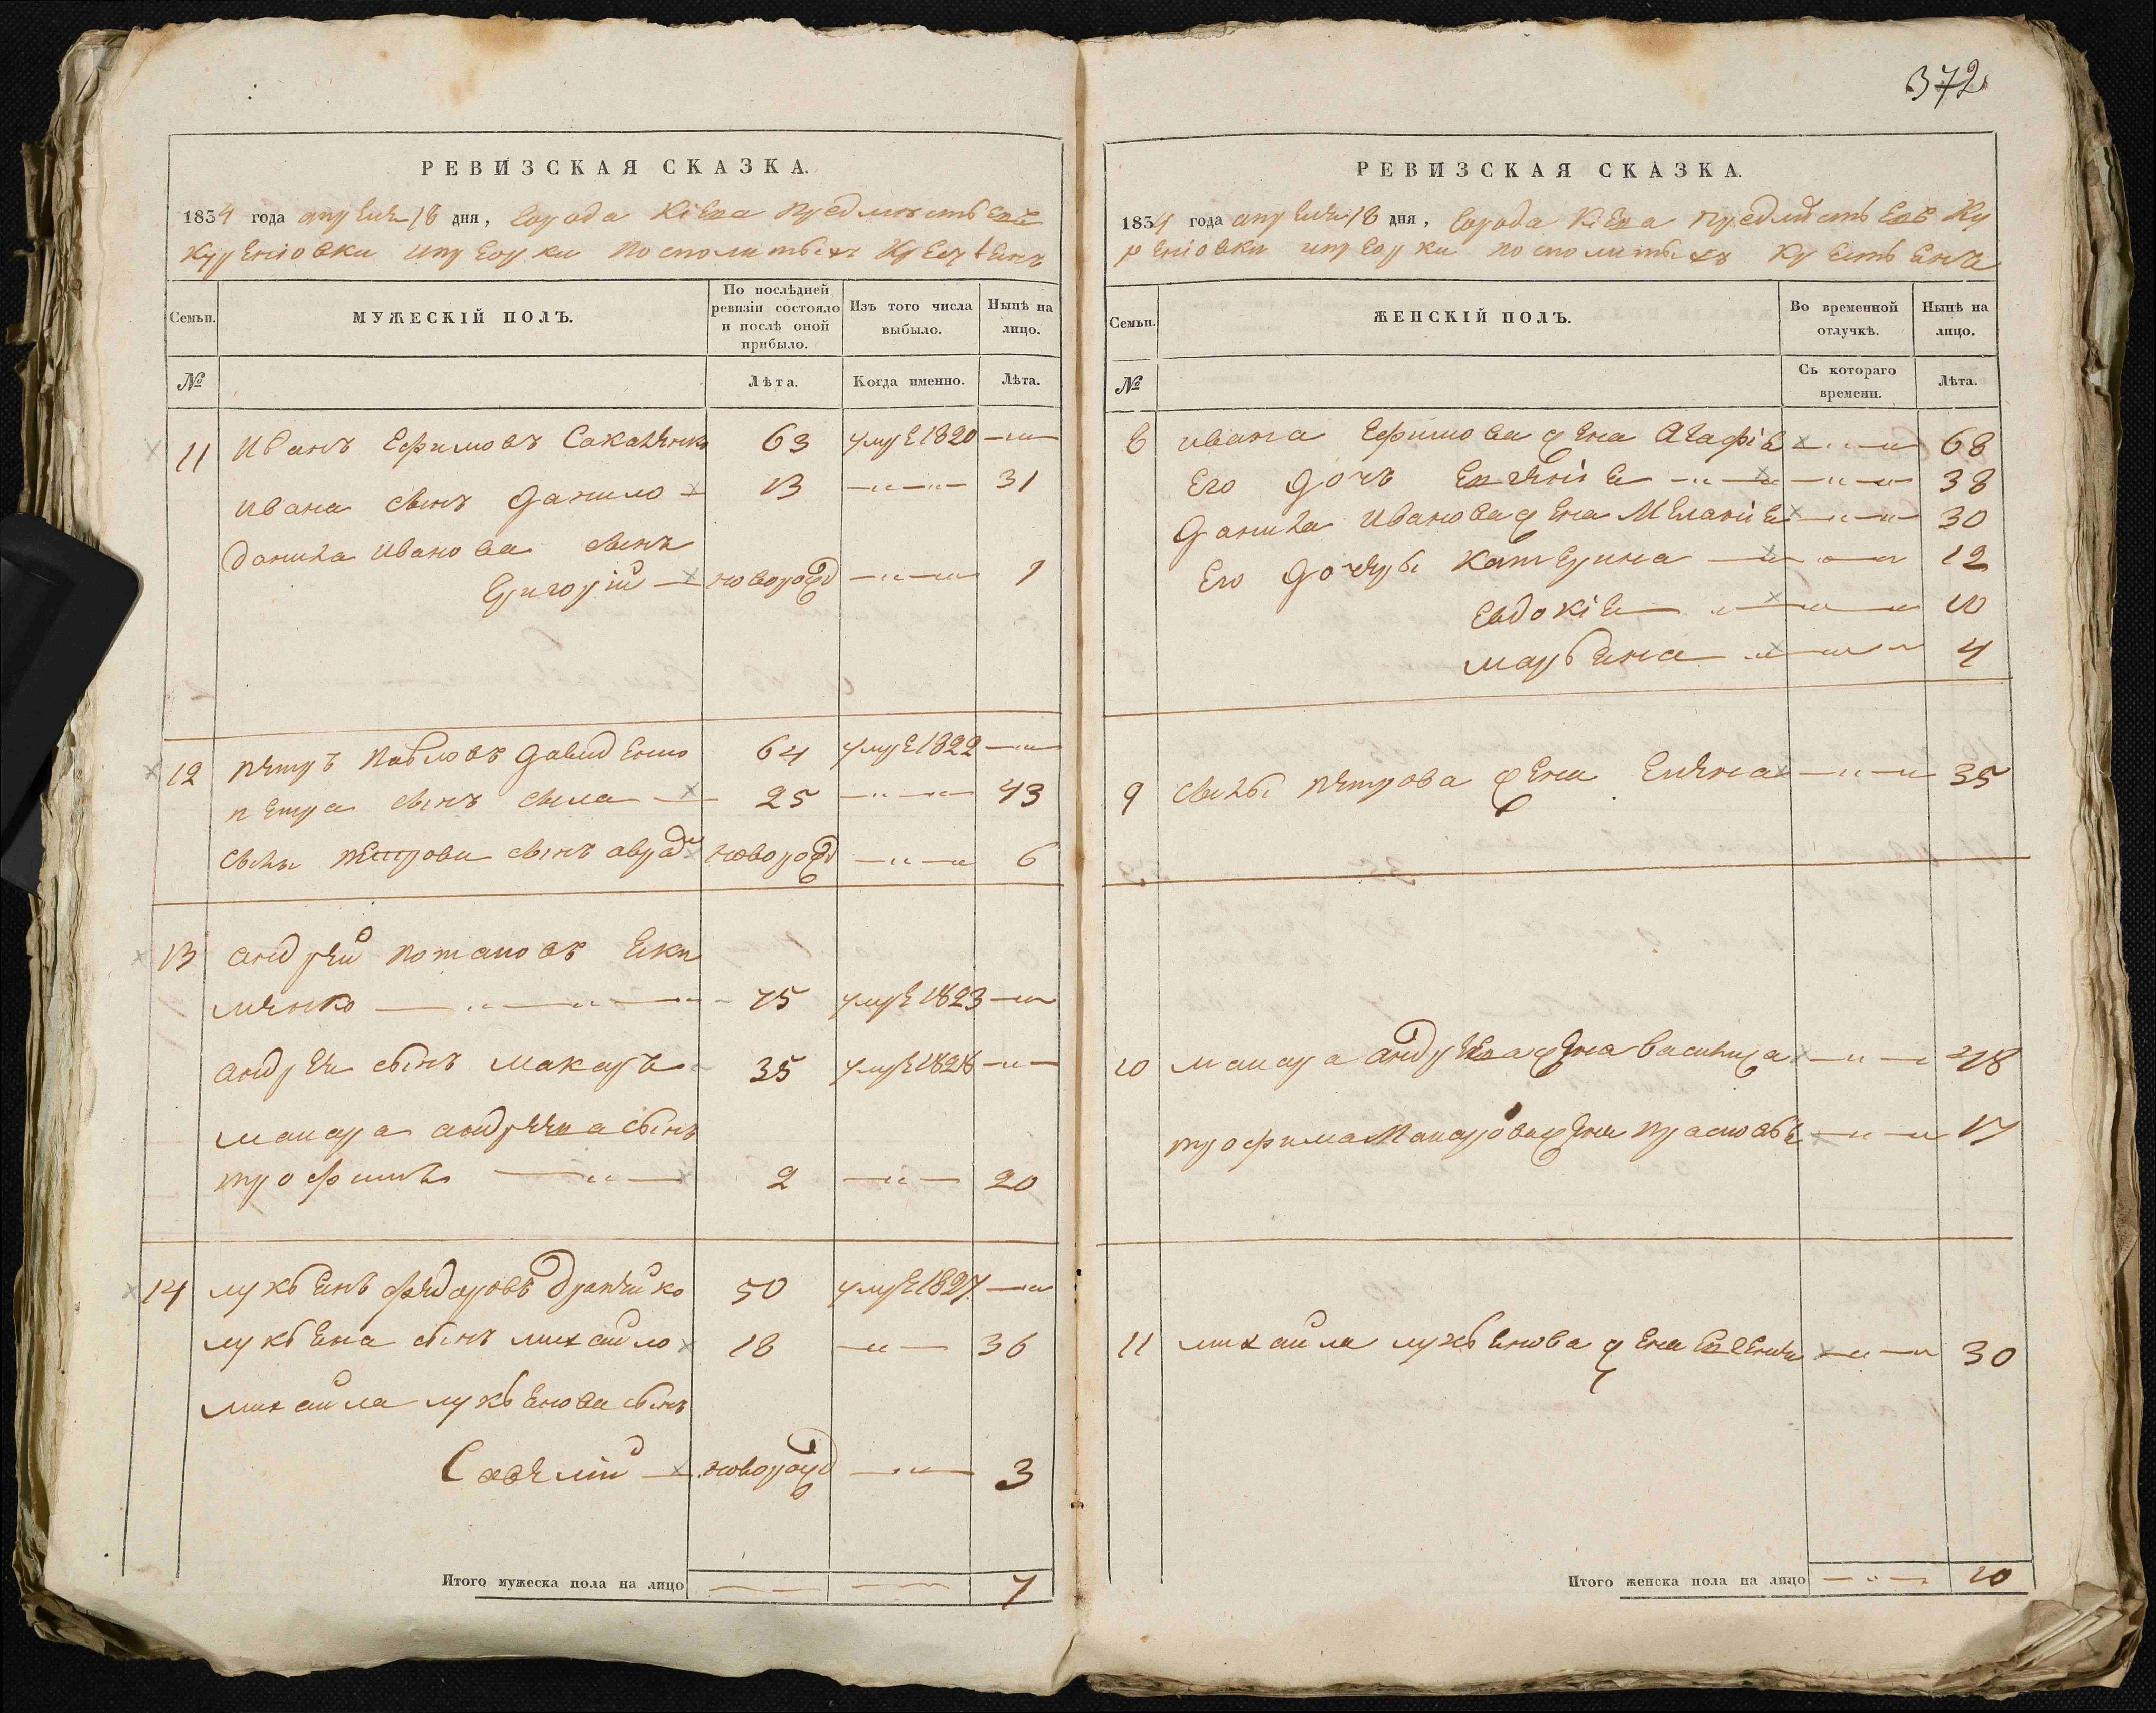 372
РЕВИЗСКАЯ СКАЗКА.
1834 года апреля 18 дня, города Кіева предмѣстьевъ
Куреніовки ипрворки посполитыхъ Крестьянъ
Семьи.
МУЖЕСКІЙ ПОЛЪ.
По послѣдней ревизіи состояло и послѣ оной прибыло.
Изъ того числа выбыло.
Нынѣ на лицо.
№
Лѣта.
Когда именно.
Лѣта.
11 Иванъ Ефимовъ 63 умре 1820
Ивана сынъ Данило 13 31
Данила Иванова сынъ
Григорій новорожд 1
12 Петръ Павловъ Давиденко 64 умре 1822
Петра сынъ Сыла 25 43
Сылы Петрова сынъ новорожд 6
13 Андрей Потаповъ Яки
менко 75 умре 1823
Андрея сынъ Макаръ 35 умре 1828
Макара Андреева сынъ
Трофимъ 2 20
14 Лукьянъ Федоровъ 50 умре 1827
Лукьяна сынъ Михайло 18 36
Михайла Лукьянова сынъ
Савелій новорожд 3
Итого мужеска пола на лицо 7
РЕВИЗСКАЯ СКАЗКА.
1834 года апреля 18 дня, города Кіева предмѣстьевъ Ку
реніовки ипрворки посполитыхъ Крестьянъ
Семьи.
ЖЕНСКІЙ ПОЛЪ.
Во временной отлучкѣ.
Нынѣ на лицо.
№
Съ котораго времени.
Лѣта.
8 Ивана Ефимова жена Агафія 68
Его дочь Евгенія 38
Данила Иванова жена Меланія 30
Его дочеры Катерина 12
Евдокія 10
Марьяна 4
9 Сылы Петрова жена Елена 35
10 Макара Андреева жена Василиса 48
Трофима Макарова жена Прасковья 17
11 Михайла Лукьянова жена Евгенія 30
Итого женска пола на лицо 10